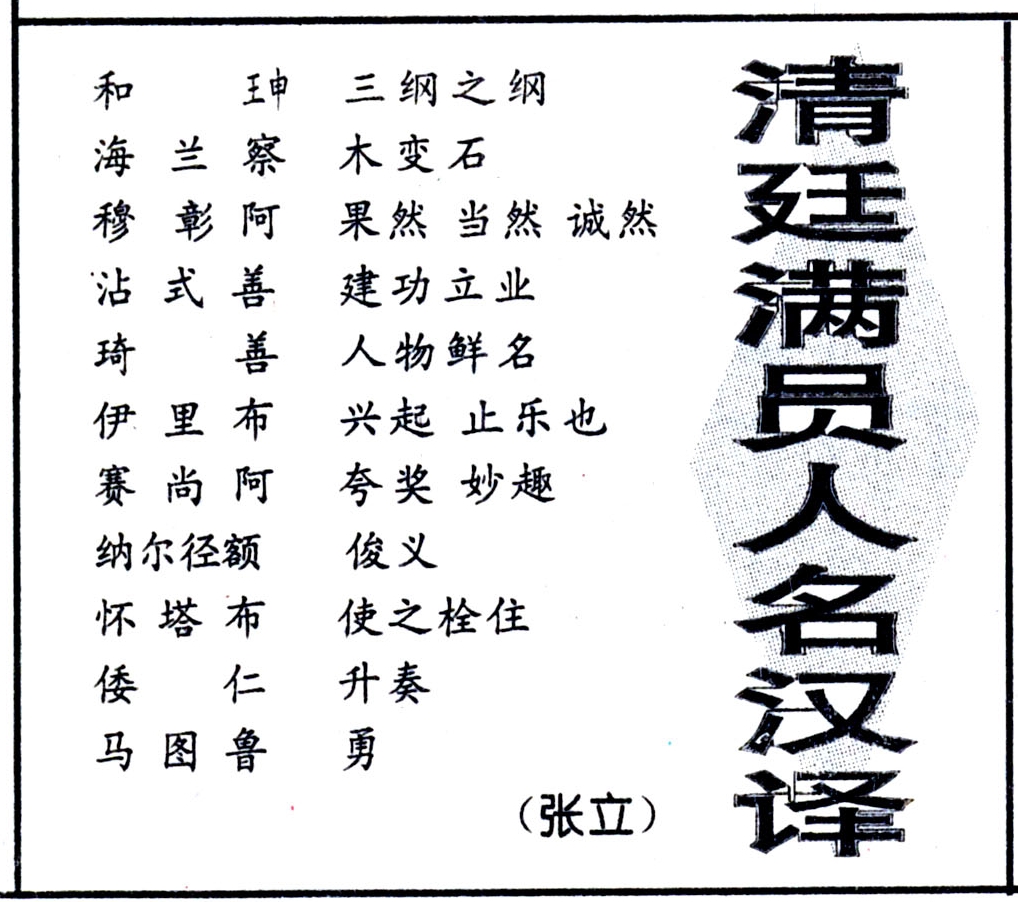 清廷满员人名汉译
和珅 三纲之纲
海兰察 木变石
穆彰阿 果然 当然 诚然
沾式善 建功立业
琦善 人物鲜名
伊里布 兴起 止乐也
赛尚阿 夸奖 妙趣
纳尔径额 俊义
怀塔布 使之栓住
倭仁 升奏
马图鲁 勇
（张立）